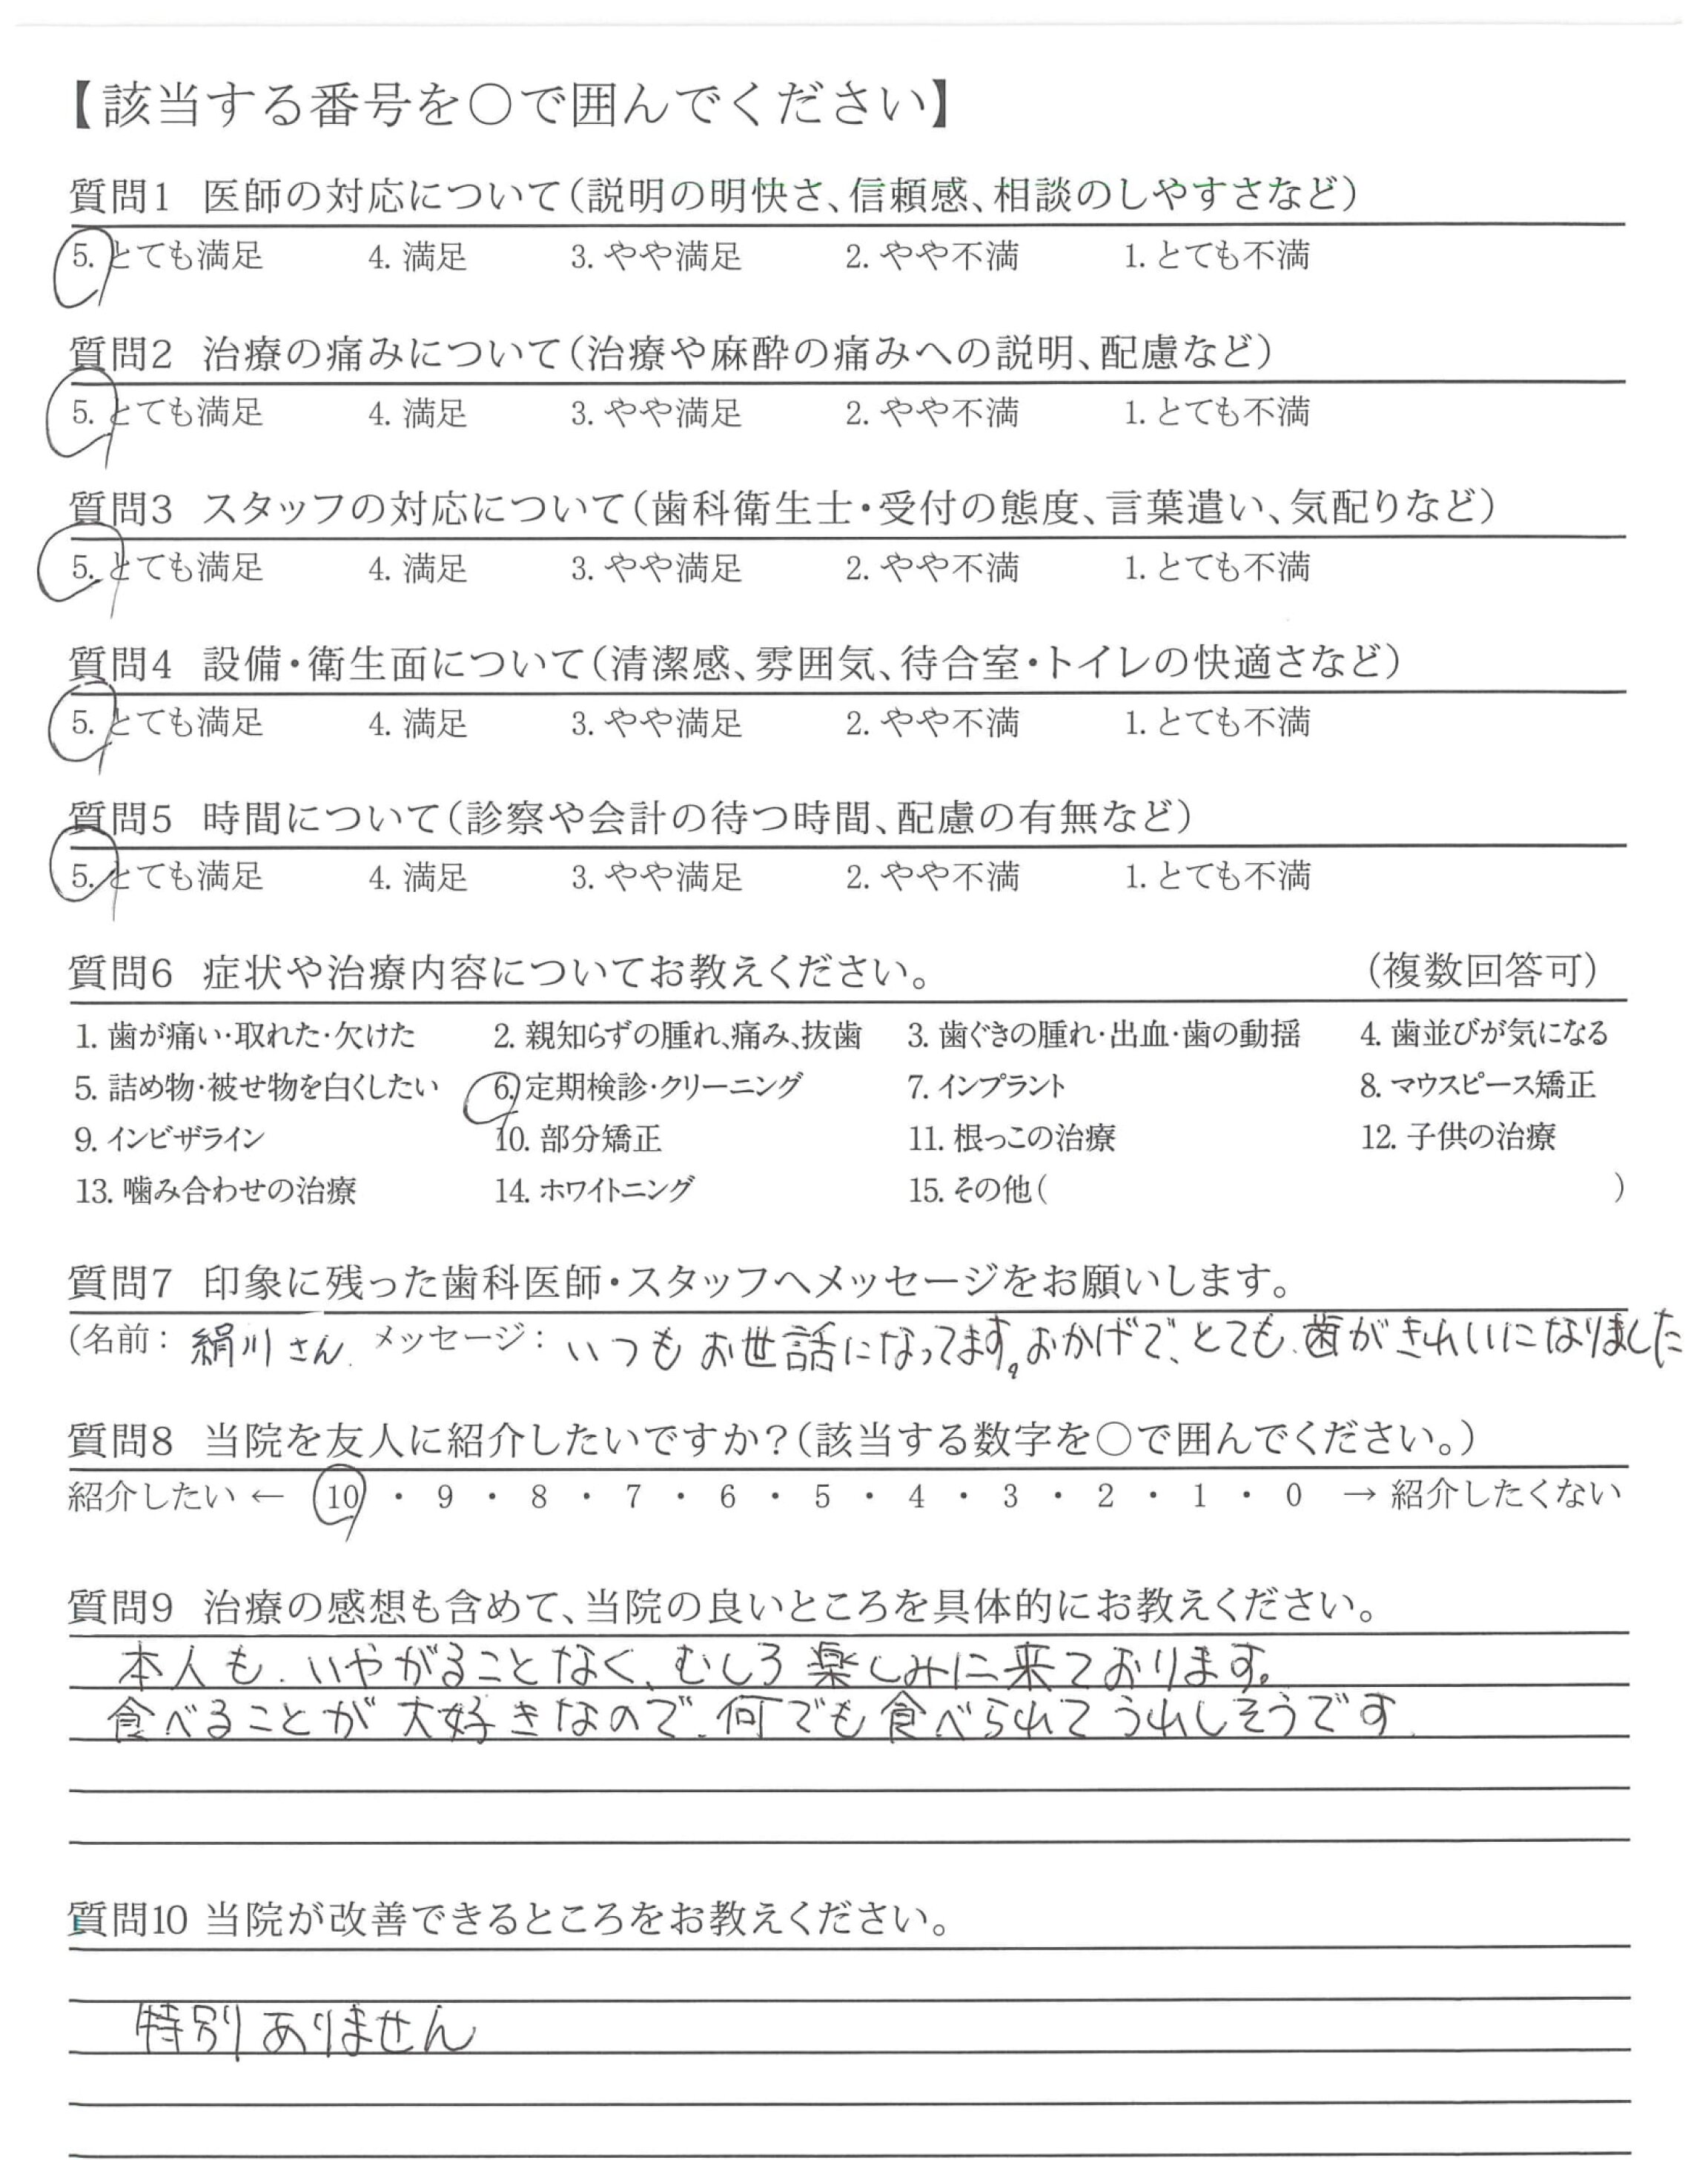 【該当する番号を○で囲んでください】
質問1 医師の対応について(説明の明快さ、信頼感、相談のしやすさなど)
5. とても満足 4. 満足 3. やや満足 2. やや不満 1. とても不満
質問2 治療の痛みについて(治療や麻酔の痛みへの説明、配慮など)
5. とても満足 4. 満足 3. やや満足 2. やや不満 1. とても不満
質問3 スタッフの対応について(歯科衛生士・受付の態度、言葉遣い、気配りなど)
5. とても満足 4. 満足 3. やや満足 2. やや不満 1. とても不満
質問4 設備・衛生面について(清潔感、雰囲気、待合室・トイレの快適さなど)
5. とても満足 4. 満足 3. やや満足 2. やや不満 1. とても不満
質問5 時間について(診察や会計の待つ時間、配慮の有無など)
5. とても満足 4. 満足 3. やや満足 2. やや不満 1. とても不満
質問6 症状や治療内容についてお教えください。 (複数回答可)
1. 歯が痛い・取れた・欠けた 2. 親知らずの腫れ、痛み、抜歯 3. 歯ぐきの腫れ・出血・歯の動揺 4. 歯並びが気になる
5. 詰め物・被せ物を白くしたい 6. 定期検診・クリーニング 7. インプラント 8. マウスピース矯正
9. インビザライン 10. 部分矯正 11. 根っこの治療 12. 子供の治療
13. 噛み合わせの治療 14. ホワイトニング 15. その他( )
質問7 印象に残った歯科医師・スタッフへメッセージをお願いします。
(名前: 絹川さん メッセージ: いつもお世話になってます。おかげで、とても歯がきれいになりました
質問8 当院を友人に紹介したいですか?(該当する数字を○で囲んでください。)
紹介したい ← 10 ・ 9 ・ 8 ・ 7 ・ 6 ・ 5 ・ 4 ・ 3 ・ 2 ・ 1 ・ 0 → 紹介したくない
質問9 治療の感想も含めて、当院の良いところを具体的にお教えください。
本人も、いやがることなく、むしろ楽しみに来ております。
食べることが大好きなので、何でも食べられてうれしそうです
質問10 当院が改善できるところをお教えください。
特別ありません